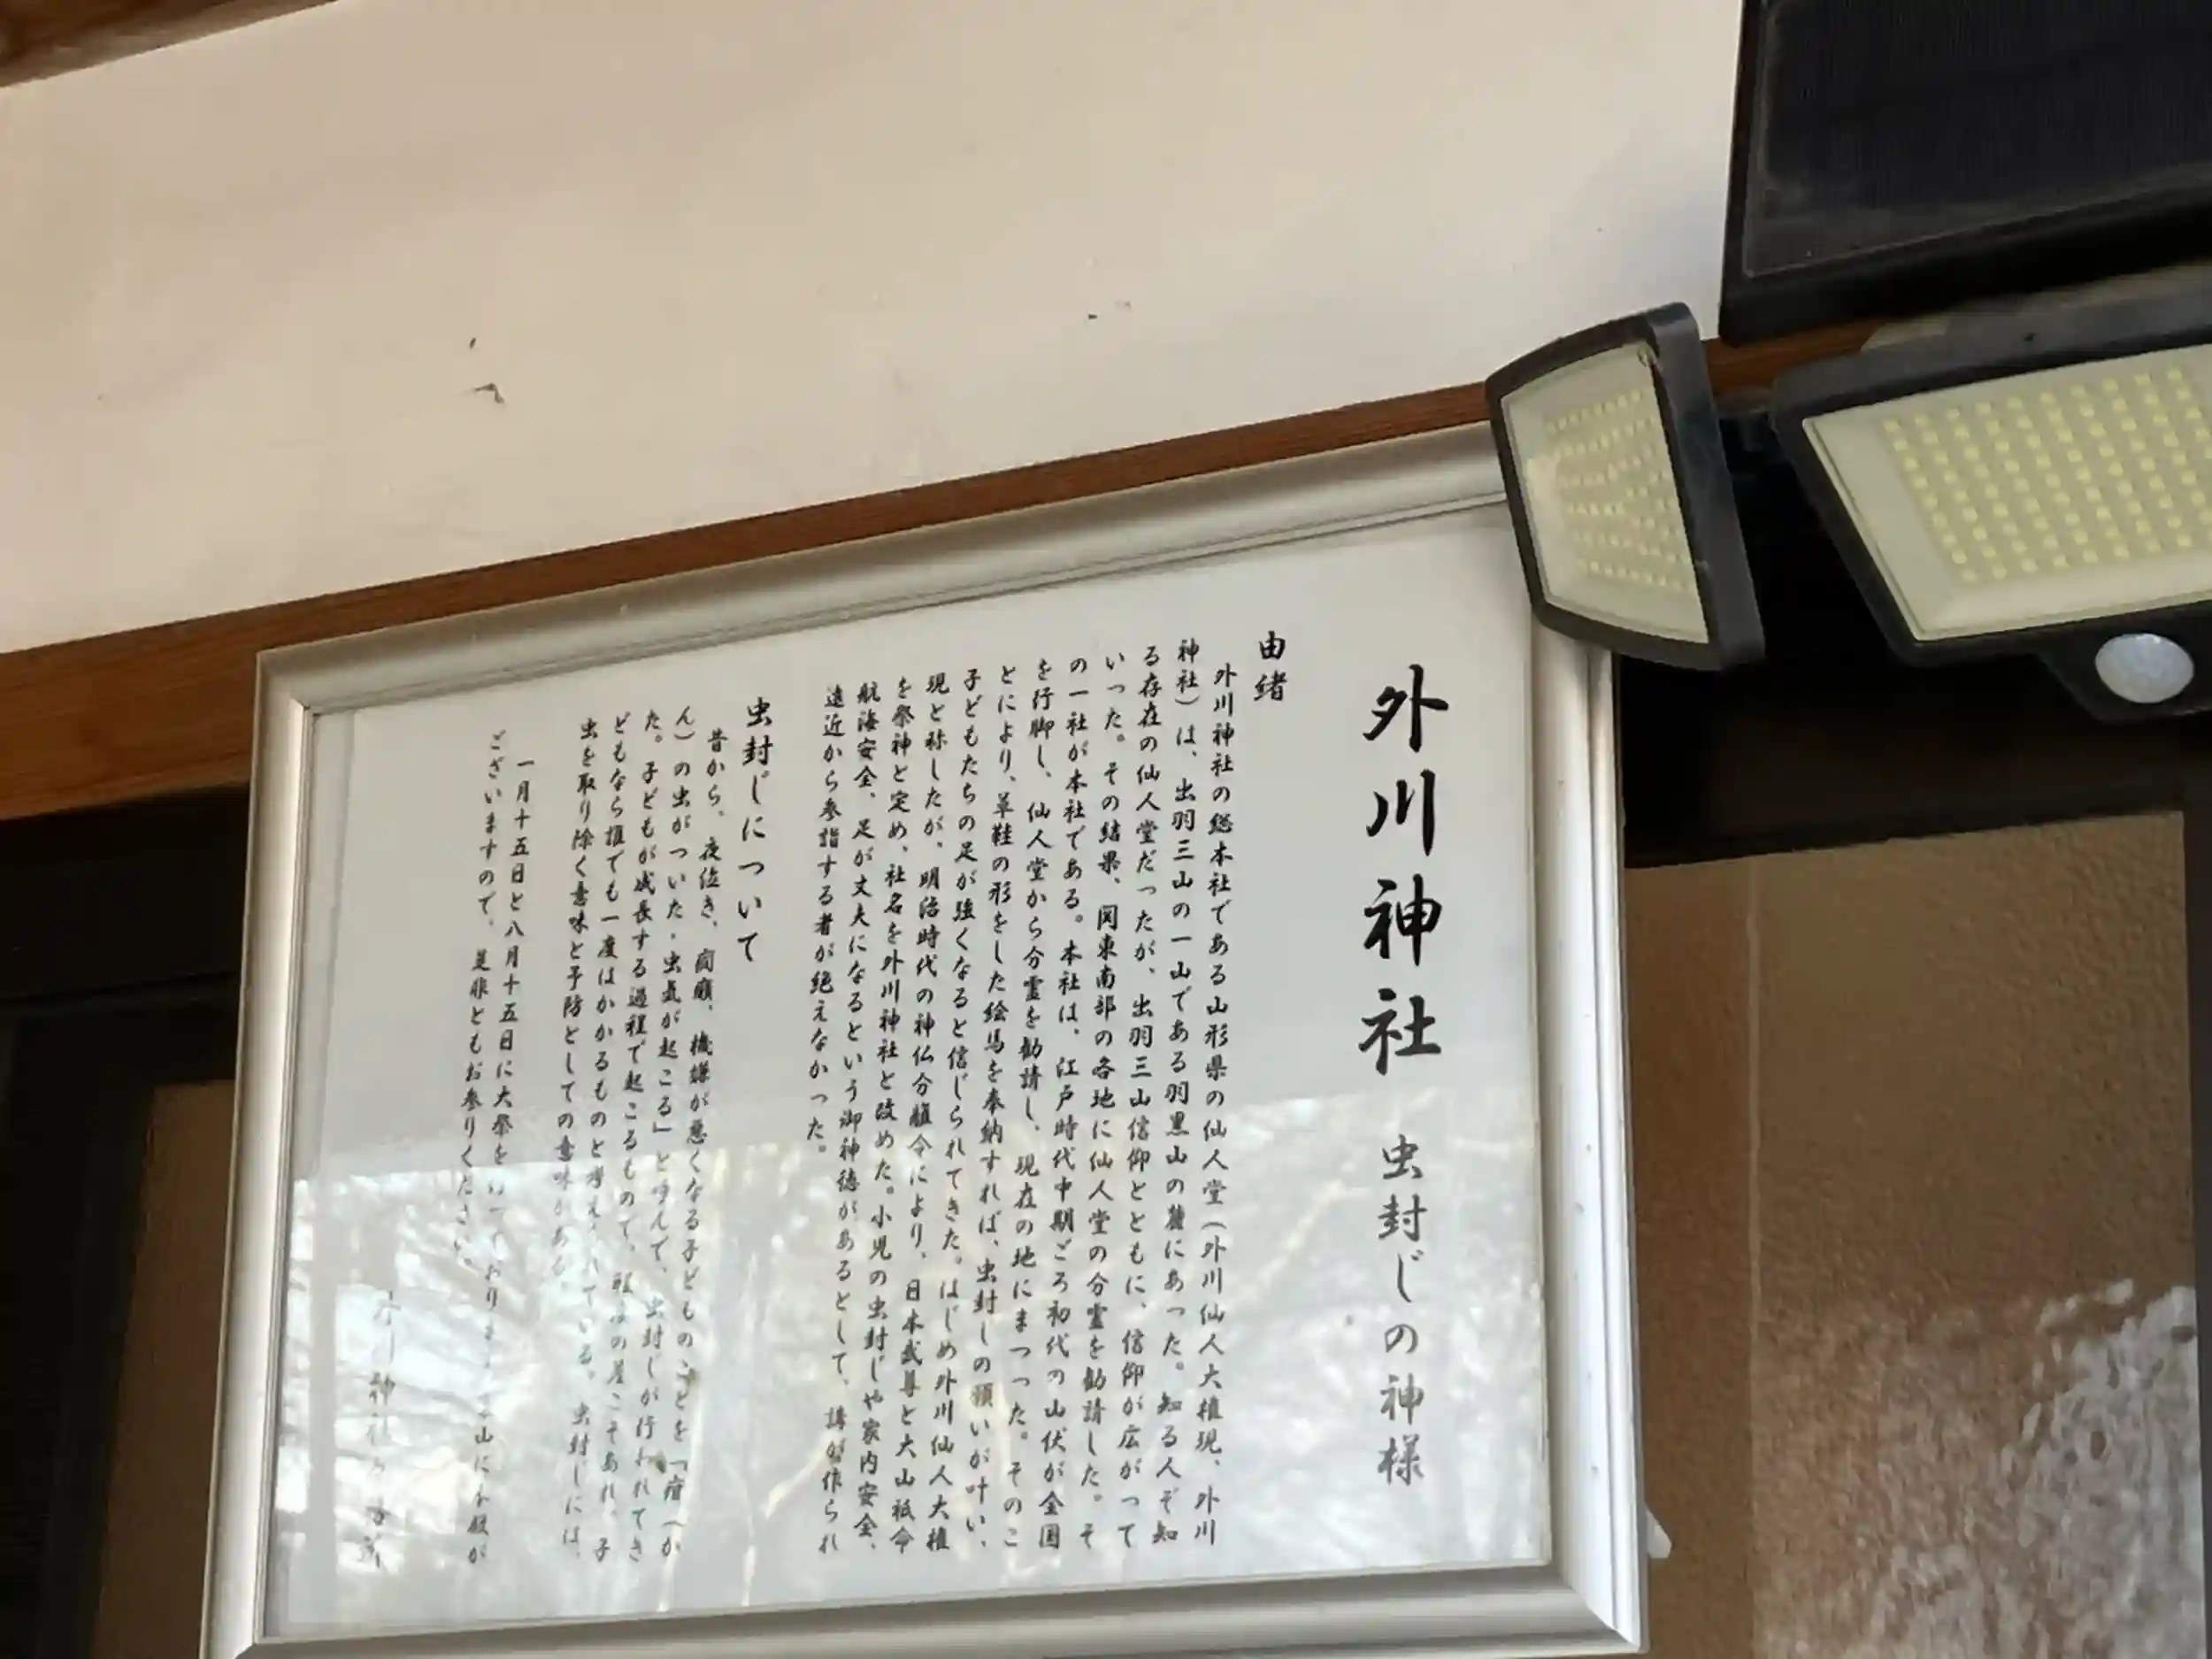 外川神社 虫封じの神様
由緒
外川神社の総本社である山形県の仙人堂(外川仙人大権現、外川
神社)は、出羽三山の一山である羽黒山の麓にあった。知る人ぞ知
る存在の仙人堂だったが、出羽三山信仰とともに、信仰が広がって
いった。その結果、関東南部の各地に仙人堂の分霊を勧請した。そ
の一社が本社である。本社は、江戸時代中期ごろ初代の山伏が全国
を行脚し、仙人堂から分霊を勧請し、現在の地にまつった。そのこ
とにより、草鞋の形をした絵馬を奉納すれば、虫封しの願いが叶い、
子どもたちの足が強くなると信じられてきた。はじめ外川仙人大権
現と称したが、明治時代の神仏分離令により、日本武尊と大山祇命
を祭神と定め、社名を外川神社と改めた。小児の虫封じや家内安全、
航海安全、足が丈夫になるという御神徳があるとして、講が作られ
遠近から参詣する者が絶えなかった。
虫封じについて
昔から、夜泣き、癇癪、機嫌が悪くなる子どものことを「疳(か
ん)の虫がついた・虫気が起こる」と呼んで、虫封じが行われてき
た。子どもが成長する過程で起こるもので、程度の差こそあれ、子
どもなら誰でも一度はかかるものと考えられている。虫封じには、
虫を取り除く意味と予防としての意味がある。
一月十五日と八月十五日に大祭を行っております。山に小報が
ございますので、是非ともお参りください。
外川神社